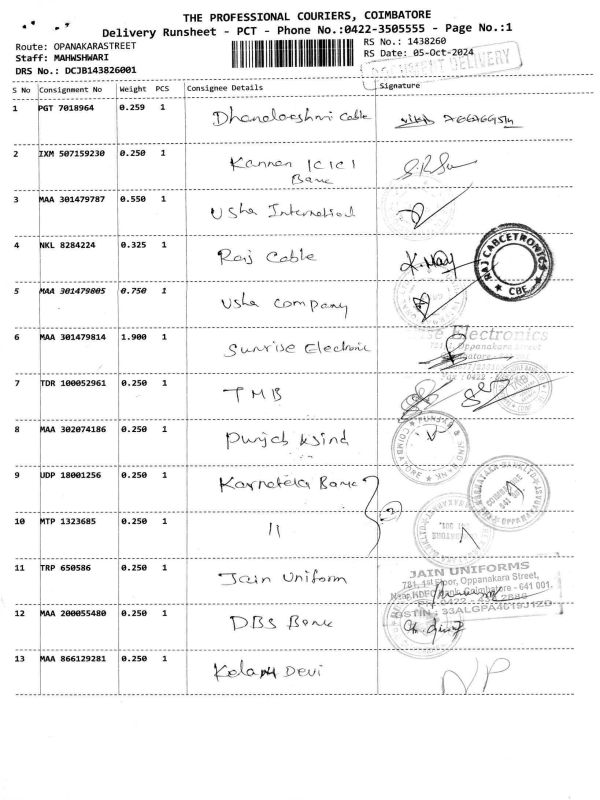 THE PROFESSIONAL COURIERS, COIMBATORE
Delivery Runsheet - PCT - Phone No.:0422-3505555 - Page No.:1
Route: OPANAKARASTREET
Staff: MAHWSHWARI
DRS No.: DCJB143826001
RS No.: 1438260
RS Date: 05-Oct-2024
DELIVERY
S No Consignment No Weight PCS Consignee Details Signature
1 PGT 7018964 0.259 1 Cable
2 IXM 507159230 0.250 1 Kannan ICICI
Bank
3 MAA 301479787 0.550 1 Usha
4 NKL 8284224 0.325 1 Raj Cable
RAJ CABCETRONICS
CBE
5 MAA 301479805 0.750 1 Usha Company
6 MAA 301479814 1.900 1 Sunrise Electronic
Electronics
Oppanakara Street
7 TDR 100052961 0.250 1 TMB
8 MAA 302074186 0.250 1 Punjab & Sind
& SIND BANK
COIMBATORE
9 UDP 18001256 0.250 1 Karnataka Bank
2
KARNATAKA BANK LTD
10 MTP 1323685 0.250 1 11
11 TRP 650586 0.250 1 Jain Uniform
JAIN UNIFORMS
781, 1st Floor, Oppanakara Street,
Near HDFC Bank Coimbatore - 641 001.
12 MAA 200055480 0.250 1 DBS Bank
13 MAA 866129281 0.250 1 Devi NP